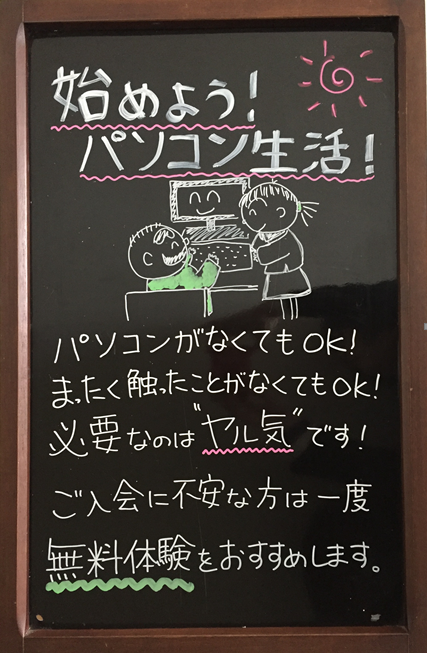 始めよう!
パソコン生活!
パソコンがなくてもOK!
まったく触ったことがなくてもOK!
必要なのは"ヤル気"です!
ご入会に不安な方は一度
無料体験をおすすめします。